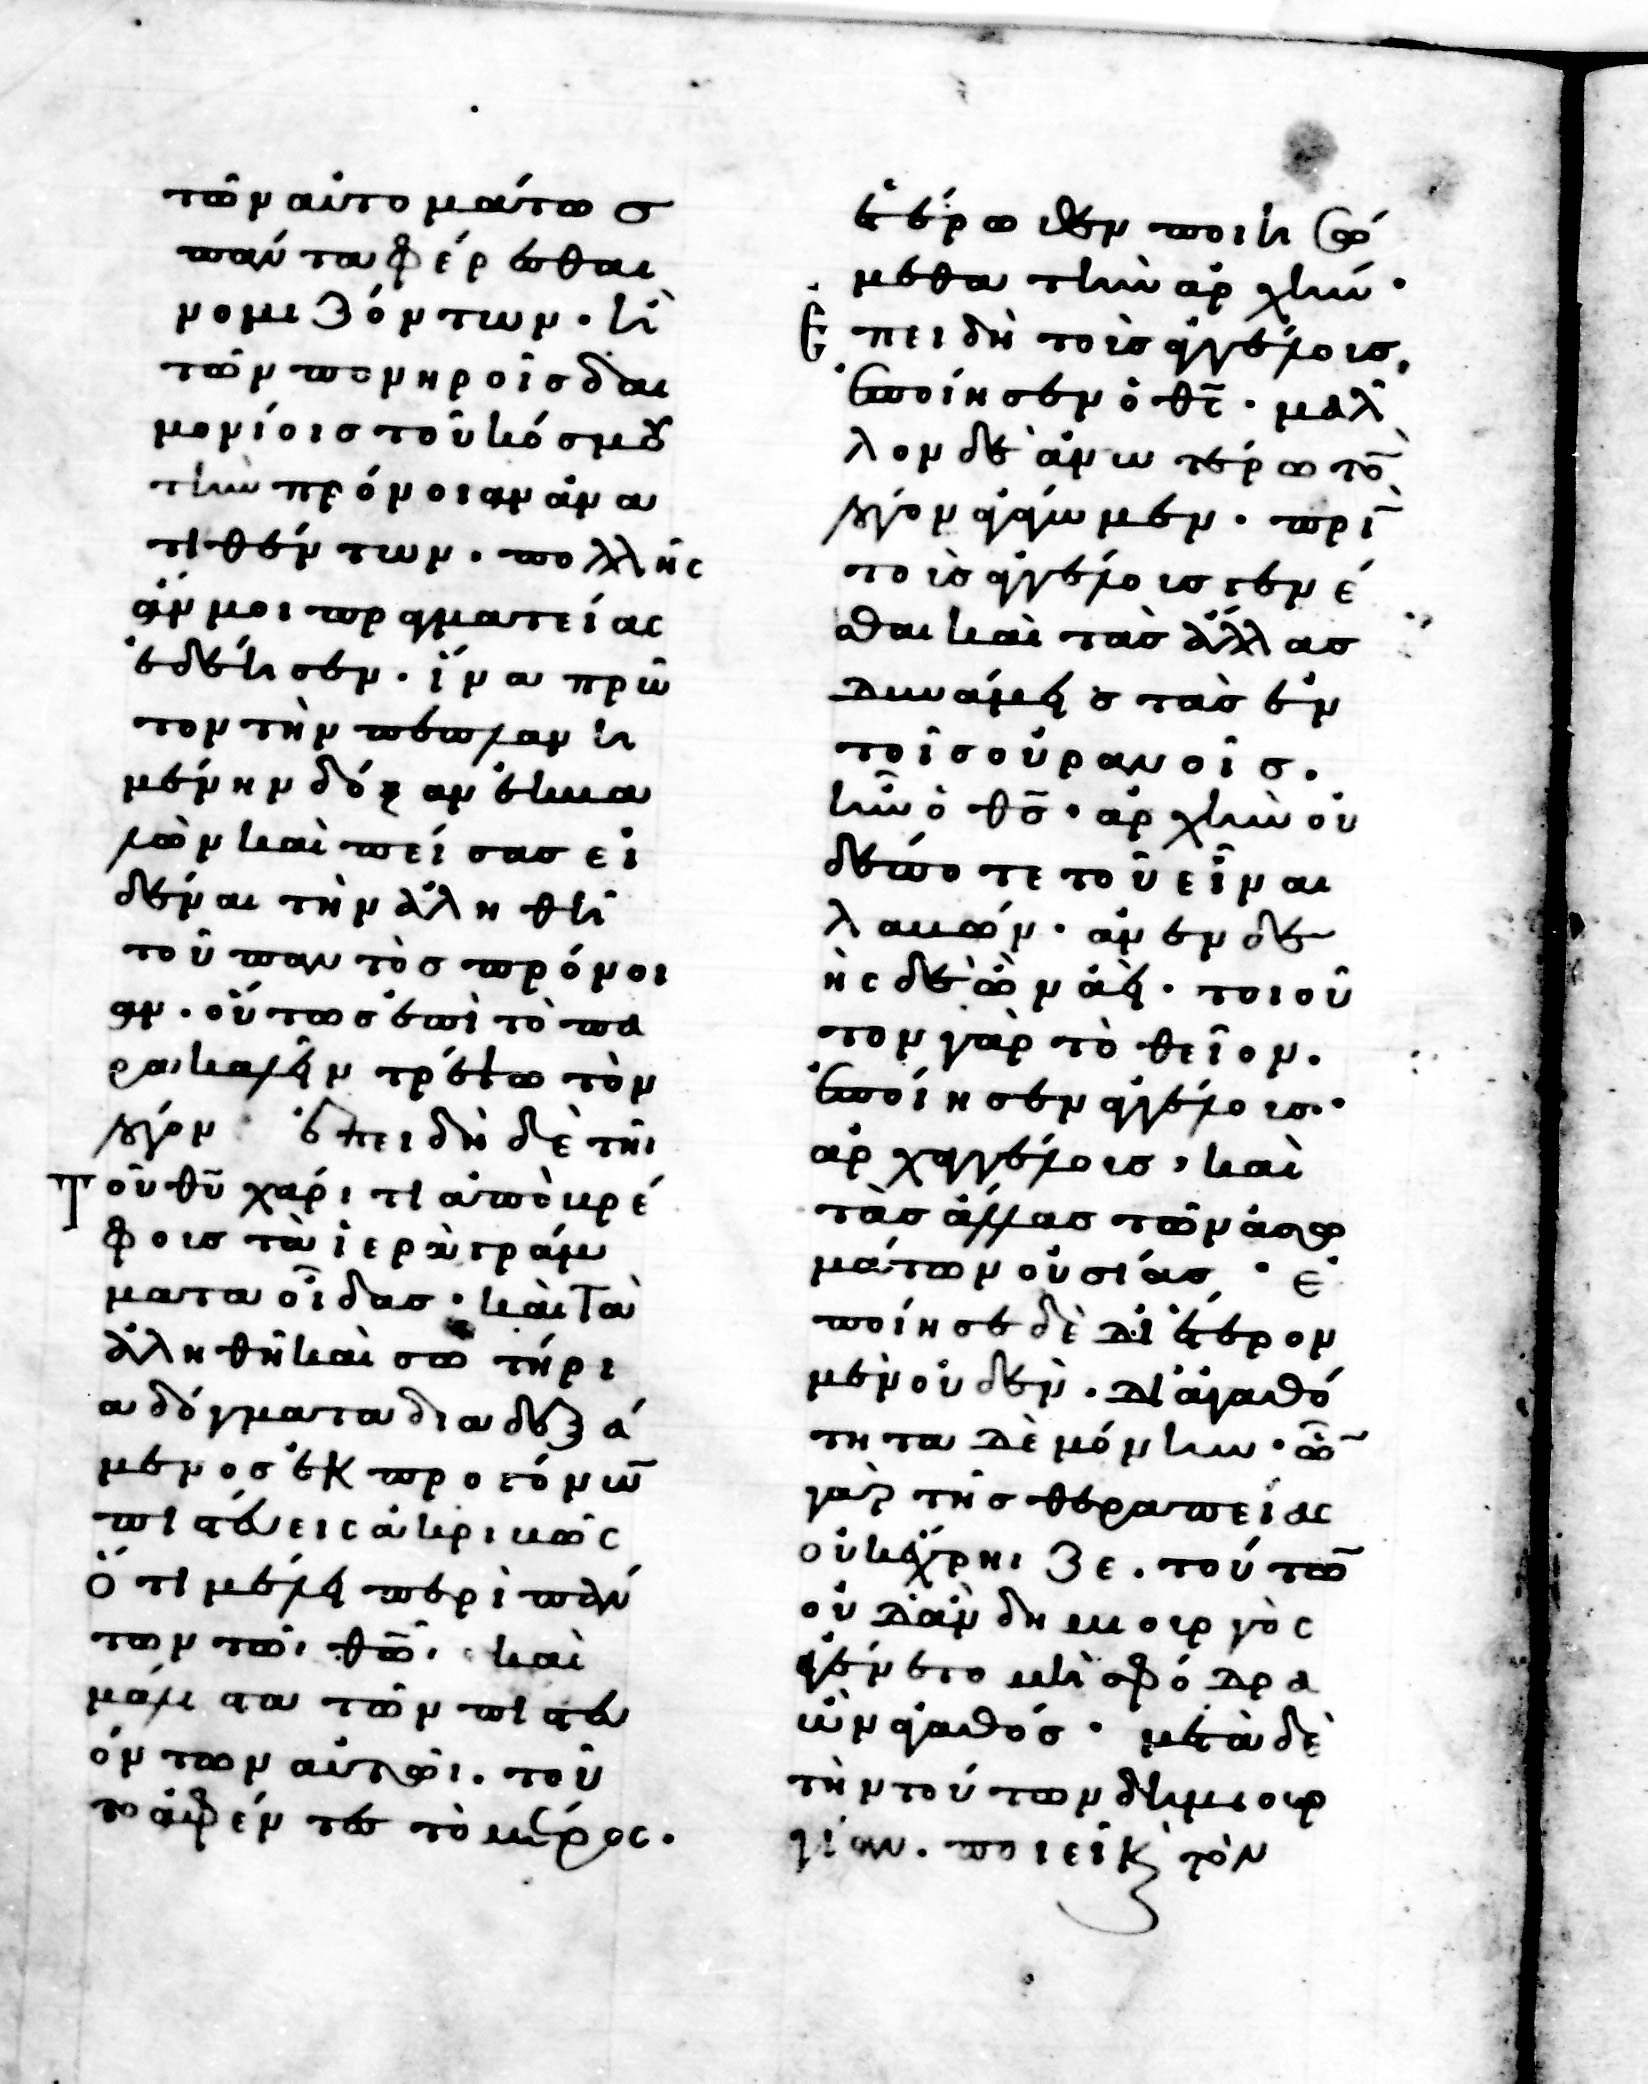 τῶν αὐτομάτως
πάντα φέρεσθαι
νομιζόντων · ἢ
τῶν πονηροῖς δαι
μονίοις τοῦ κόσμου
τὴν πρόνοιαν ἀνα
τιθέντων · πολλῆς
ἄν μοι πραγματείας
ἐδέησεν · ἵνα πρῶ
τον τὴν πεπλανη
μένην δόξαν ἐκκα
λῶν καὶ πείσας εἰ
δέναι τὴν ἀληθῆ
τοῦ παντὸς πρόνοι
αν · οὕτως ἐπὶ τὸ πα
ρακαλεῖν τρέπω τὸν
λόγον ἐπειδὴ δὲ τῆι
τοῦ θυ χάριτι ἀπὸ βρέ
φοις τὰ ἱερὰ γράμ
ματα οἶδας · καὶ τὰ
ἀληθῆ καὶ σωτήρι
α δόγματα διαδεξά
μενος ἐκ προγόνων
πιστεύεις ἀκριβῶς
ὅτι μέλει περὶ πάν
των τῶι θῶι · καὶ
μάλιστα τῶν πιστευ
όντων αὐτῶι · τοῦ
το ἀφέντες τὸ μέρος ·
ἑτέρωθεν ποιησώ
μεθα τὴν ἀρχήν ·
Ἐπειδὴ τοὺς ἀγγέλους,
ἐποίησεν ὁ θς · μᾶλ
λον δὲ ἀνωτέρω τὸν
λόγον ἀγάγωμεν · πρὶν
τοὺς ἀγγέλους γενέ
σθαι καὶ τὰς ἄλλας
δυνάμεις τὰς ἐν
τοῖς οὐρανοῖς ·
ἦν ὁ θς · ἀρχὴν οὐ
δέποτε τοῦ εἶναι
λαβών · ἀνενδε
ὴς δὲ ὢν ἀεὶ · τοιοῦ
τον γὰρ τὸ θεῖον ·
ἐποίησεν ἀγγέλους ·
ἀρχαγγέλους, καὶ
τὰς ἄλλας τῶν ἀσω
μάτων οὐσίας · ἐ
ποίησε δὲ δι' ἕτερον
μὲν οὐδὲν · δι' ἀγαθό
τητα δὲ μόνην · ὧν
γὰρ τῆς θεραπείας
οὐκ ἔχρηιζε · τούτων
οὐδ' ἂν δημιουργὸς
ἐγένετο μὴ σφόδρα
ὢν ἀγαθός · μετὰ δὲ
τὴν τούτων δημιουρ
γίαν · ποιεῖ κ τὸν